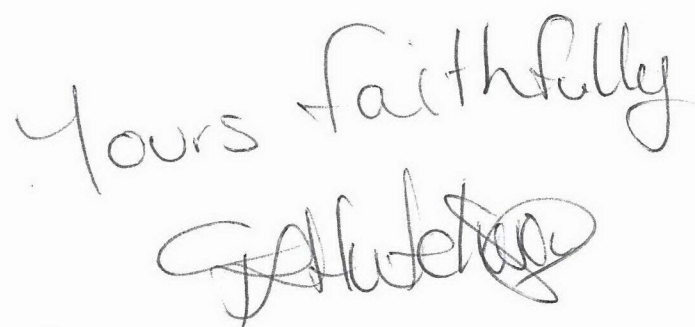 Yours faithfully